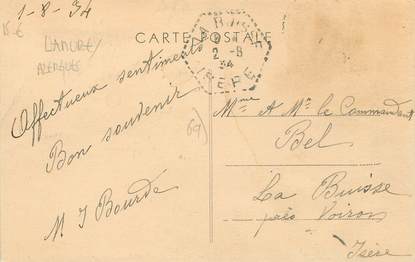 1-8-34
15€
LAMURE/
AZERGUES
CARTE POSTALE
LA BUISSE
2-8
34
ISERE
Affectueux sentiments
Bon souvenir
M J Bourde
69
Mme & Mr le Commandant
Bel
La Buisse
près Voiron
Isère